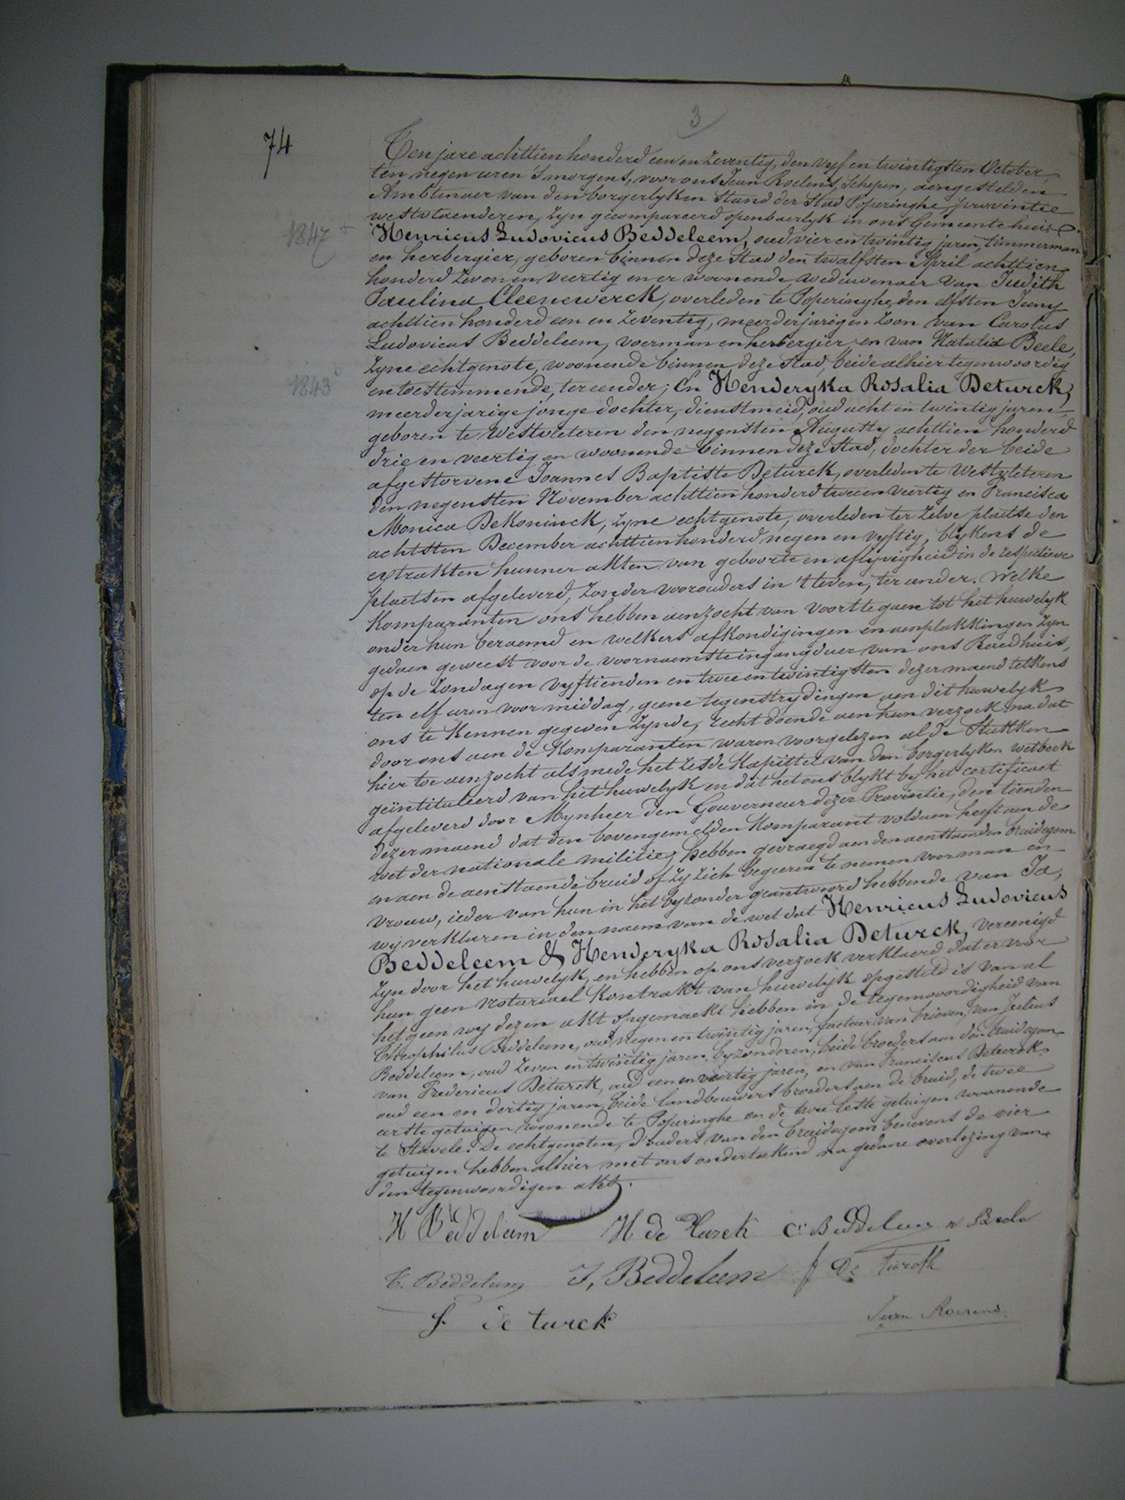 3
74
Ten jare achttien honderd een en zeventig, den vyf en twintigsten October,
ten negen uren s'morgens, voor ons Jean Roelens, Schepen, aengestelden
Ambtenaer van den borgerlyken stand der stad Poperinghe, provintie
westvlaenderen, zyn gecompareerd openbaerlyk in ons Gemeentehuis
1847
Henricus Ludovicus Beddeleem, oud vier en twintig jaren, timmerman
en herbergier, geboren binnen deze stad den twalfsten April achttien
honderd zeven en veertig en er woonende, weduwenaer van Judith
Paulina Cleenewerck, overleden te Poperinghe, den elfsten Juny
achttien honderd een en zeventig, meerderjarigen zoon van Carolus
Ludovicus Beddeleem, voerman en herbergier en van Natalia Beele,
zyne echtgenote, woonende binnen deze stad, beide alhier tegenwoordig
1843
en toestemmende, ter eender; En Henderyka Rosalia Deturck,
meerderjarige jonge dochter, dienstmeid, oud acht en twintig jaren
geboren te Westvleteren den negensten Augusty achttien honderd
drie en veertig en woonende binnen deze stad, dochter der beide
afgestorvene Joannes Baptiste Deturck, overleden te Westvleteren
den negensten November achttien honderd twee en veertig en Francisca
Monica DeKoninck, zyne echtgenote, overleden ter zelve plaetse den
achtsten December achttien honderd negen en vyftig, blykens de
extrakten hunner akten van geboorte en aflyvigheid in de respetieve
plaetsen afgeleverd, zonder voorouders in 't leven, ter ander. Welke
Komparanten ons hebben aenzocht van voort te gaen tot het huwelyk
onder hun beraemd en welkers afkondigingen en aenplakkingen zyn
gedaen geweest voor de voornaemste ingangdeur van ons Raedhuis,
op de zondagen vyftienden en twee en twintigsten dezer maend telkens
ten elf uren voormiddag, geene tegenstrydingen aen dit huwelyk
ons te kennen gegeven zynde, recht doende aen hun verzoek na dat
door ons aen de Komparanten waren voorgelezen al de stukken
hier toe aenzocht als mede het zesde kapittel van den borgerlyken wetboek
geïntituleerd van het huwelyk en dat het ons blykt by het certificaet
afgeleverd door Mynheer den Gouverneur dezer Provintie, den tienden
dezer maend dat den bovengemelden Komparant voldaen heeft aen de
wet der nationale militie; hebben gevraegd aen den aenstaenden bruidegom
en aen de aenstaende bruid of zy zich begeeren te nemen voor man en
vrouw, ieder van hun in het byzonder geantwoord hebbende van Ja,
wy verklaren in den naem van de wet dat Henricus Ludovicus
Beddeleem & Henderyka Rosalia Deturck, vereenigd
zyn door het huwelyk, en hebben op ons verzoek verklaerd dat er voor
hun geen Notariael Kontrakt van huwelyk opgesteld is van al
het geen wy dezen akt opgemaekt hebben in de tegenwoordigheid van
Theophilus Beddeleem, oud negen en twintig jaren, facteur van brieven, van Julius
Beddeleem, oud zeven en twintig jaren, byzonderen, beide broeders aen den bruidegom
van Fredericus Deturck, oud een en veertig jaren, en van Franciscus Deturck
oud een en dertig jaren beide landbouwers broeders aen de bruid, de twee
erste getuigen woonende te Poperinghe en de twee leste getuigen woonende
te Stavele. De echtgenoten, d'ouders van den bruidegom benevens de vier
getuigen hebben alhier met ons onderteekend na gedane overlezing van
den tegenwoordigen akt.
H Beddeleem H de Turck C Beddeleem N Beele
T. Beddeleem J, Beddeleem f De Turck
f. de turck Jean Roelens